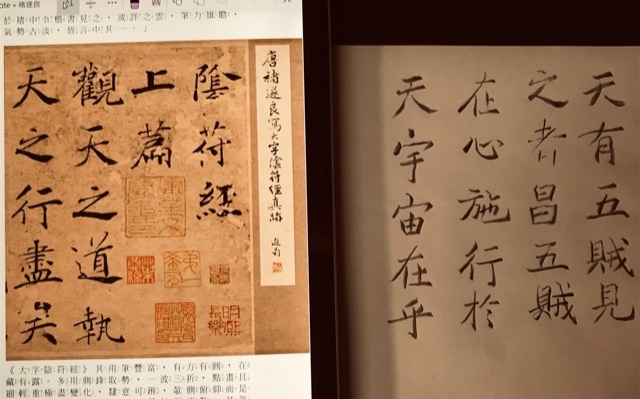 褚遂良
於褚中令楊書見之,或評之雲,筆力雄贍,
氣勢古淡,皆言中其一。」
唐褚遂良寫大字陰符經真跡
陰符經
上篇
觀天之道執
天之行盡矣
《大字陰符經》其用筆豐富,有
藏有露。多用側鋒取勢,一波三
細輕重極盡變化,隸意可辨,
天有五賊見
之者昌五賊
在心施行於
天宇宙在乎